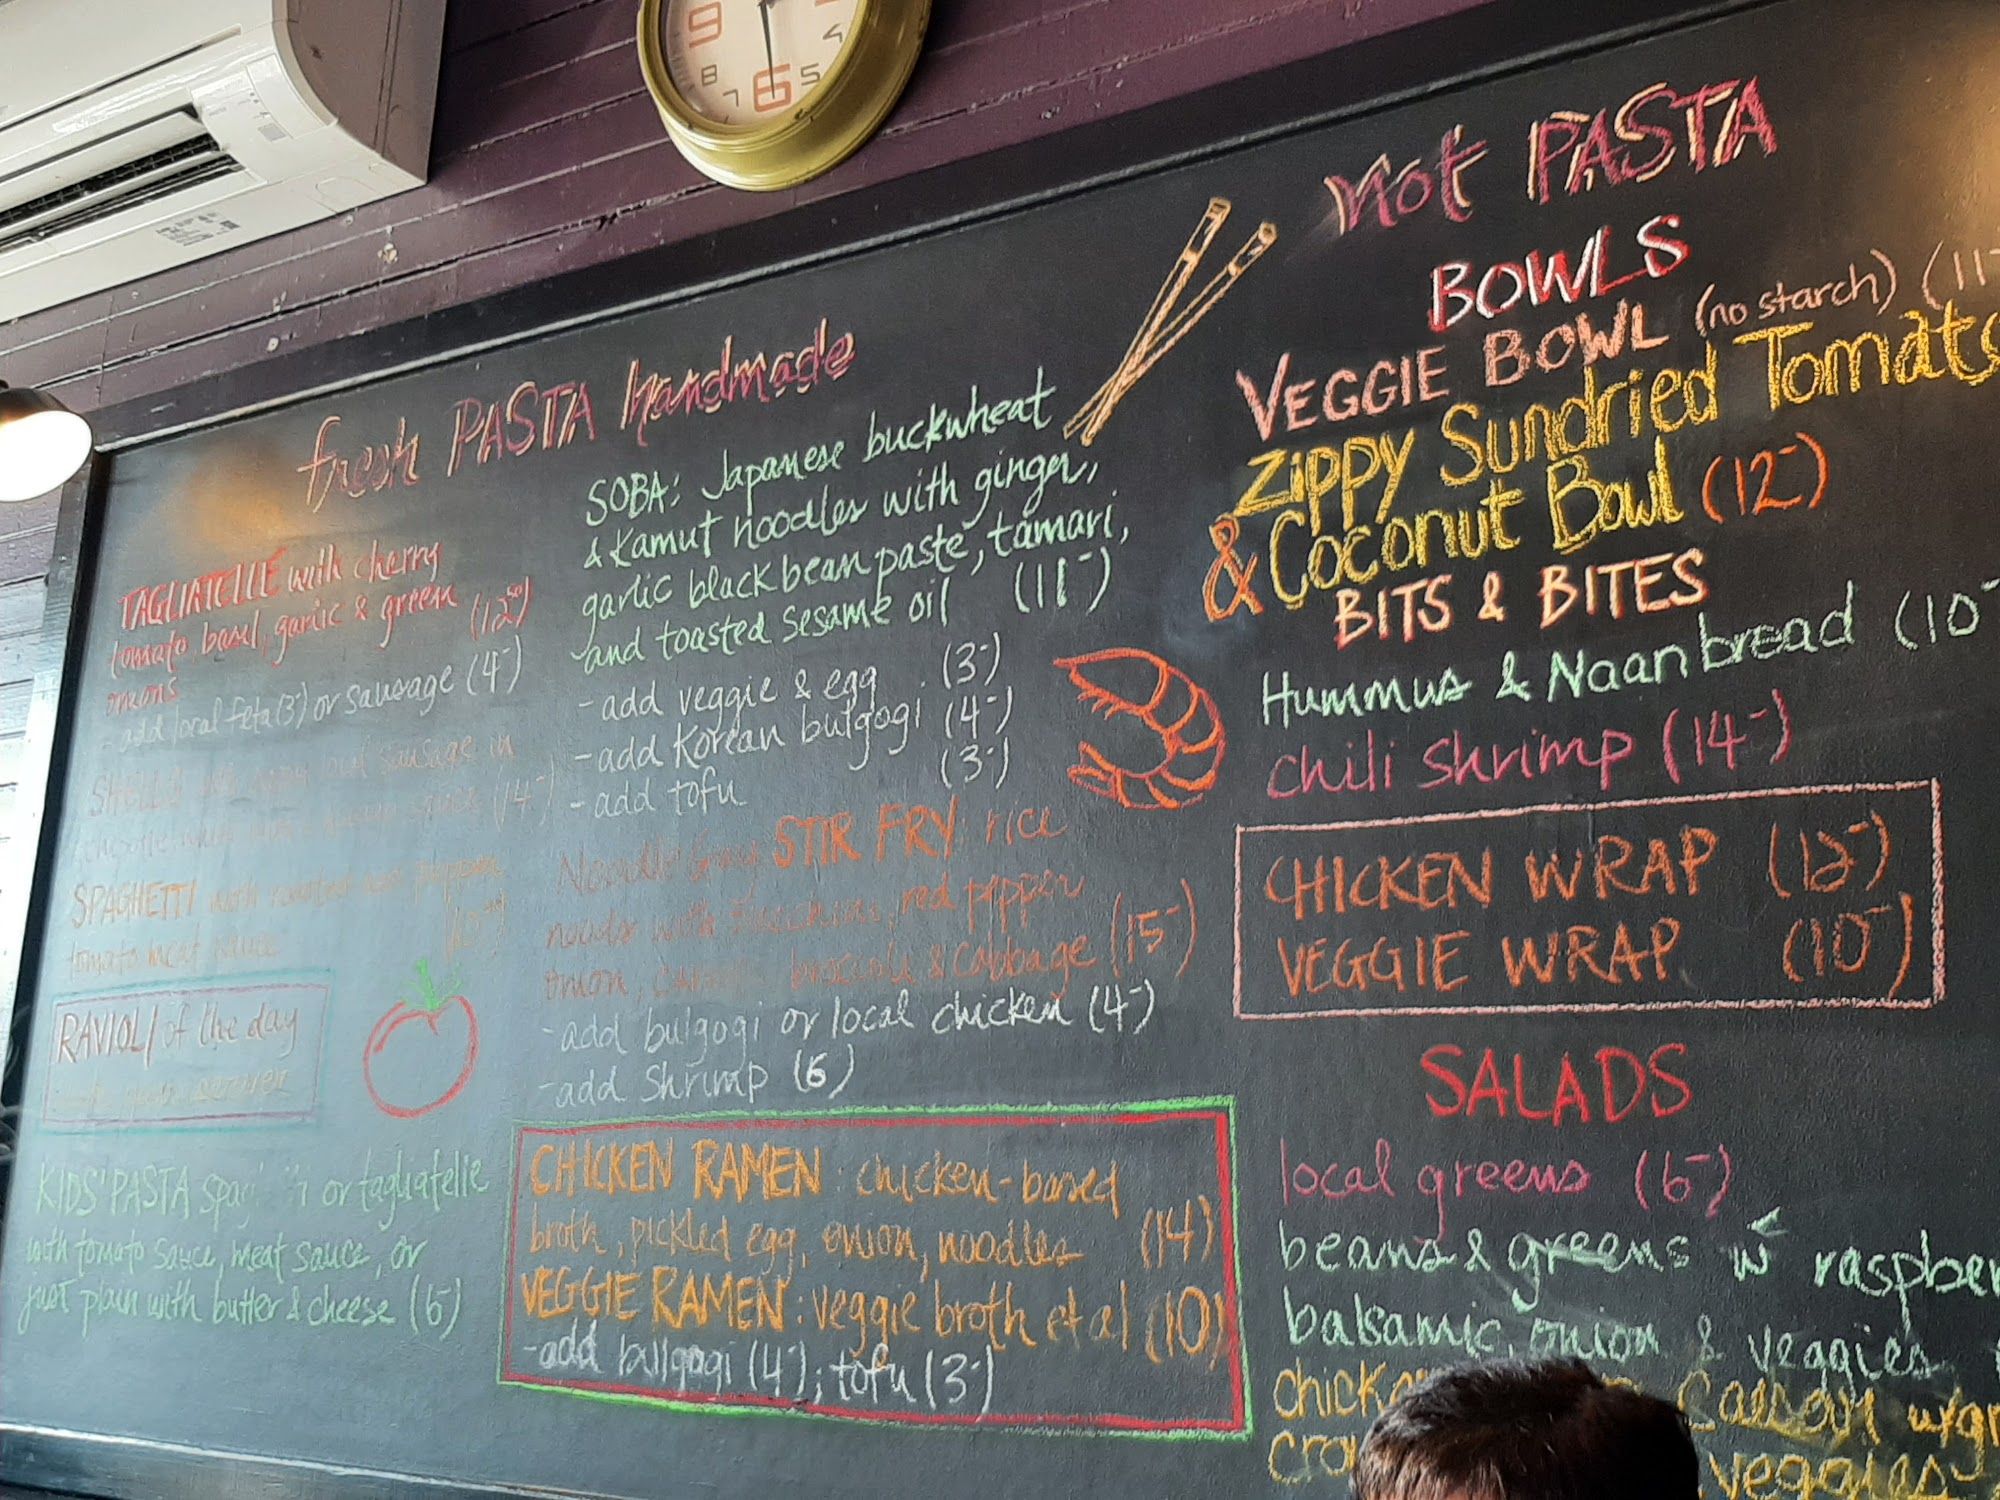 9
8
7
6
5
4
fresh PASTA handmade
TAGLIATELLE with cherry
tomato basil, garlic & green
onions (12⁵⁰)
- add local feta (3-) or sausage (4-)
SHELLS sausage in
(14-)
SPAGHETTI with roasted red pepper
tomato meat sauce
RAVIOLI of the day
KIDS' PASTA or tagliatelle
with tomato sauce, meat sauce, or
just plain with butter & cheese (6-)
SOBA: Japanese buckwheat
& Kamut noodles with ginger,
garlic black bean paste, tamari,
and toasted sesame oil (11-)
- add veggie & egg (3-)
- add Korean bulgogi (4-)
- add tofu (3-)
STIR FRY: rice
with zucchini, red pepper
onion, broccoli & cabbage (15-)
- add bulgogi or local chicken (4-)
- add shrimp (6)
CHICKEN RAMEN: chicken-based
broth, pickled egg, onion, noodles (14)
VEGGIE RAMEN: veggie broth et al (10)
- add bullgogi (4-); tofu (3-)
not PASTA
BOWLS
VEGGIE BOWL (no starch) (11-
Zippy Sundried Tomato
& Coconut Bowl (12-)
BITS & BITES
Hummus & Naan bread (10-
chili shrimp (14-)
CHICKEN WRAP (12-)
VEGGIE WRAP (10-)
SALADS
local greens (6-)
beans & greens w raspber
balsamic, onion & veggies
veggies